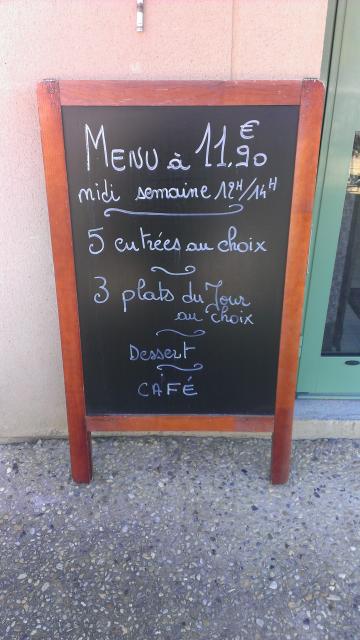 MENU à 11,90€
midi semaine 12H/14H
5 entrées au choix
3 plats du Jour
au choix
Dessert
CAFÉ